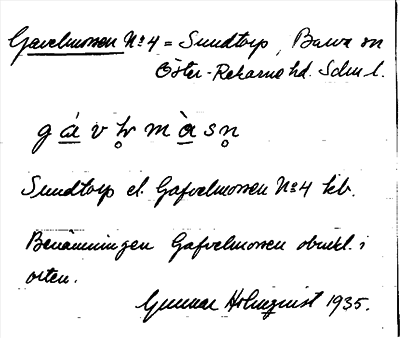 Gavelmossen No 4 = Sundtorp, Barva sn
Öster-Rekarne hd. Söml l.
g á v l̥r m à s n̥
Sundtorp el. Gafvelmossen No 4 kb.
Benämningen Gafvelmossen obrukl. i
orten.
Gunnar Holmquist 1935.